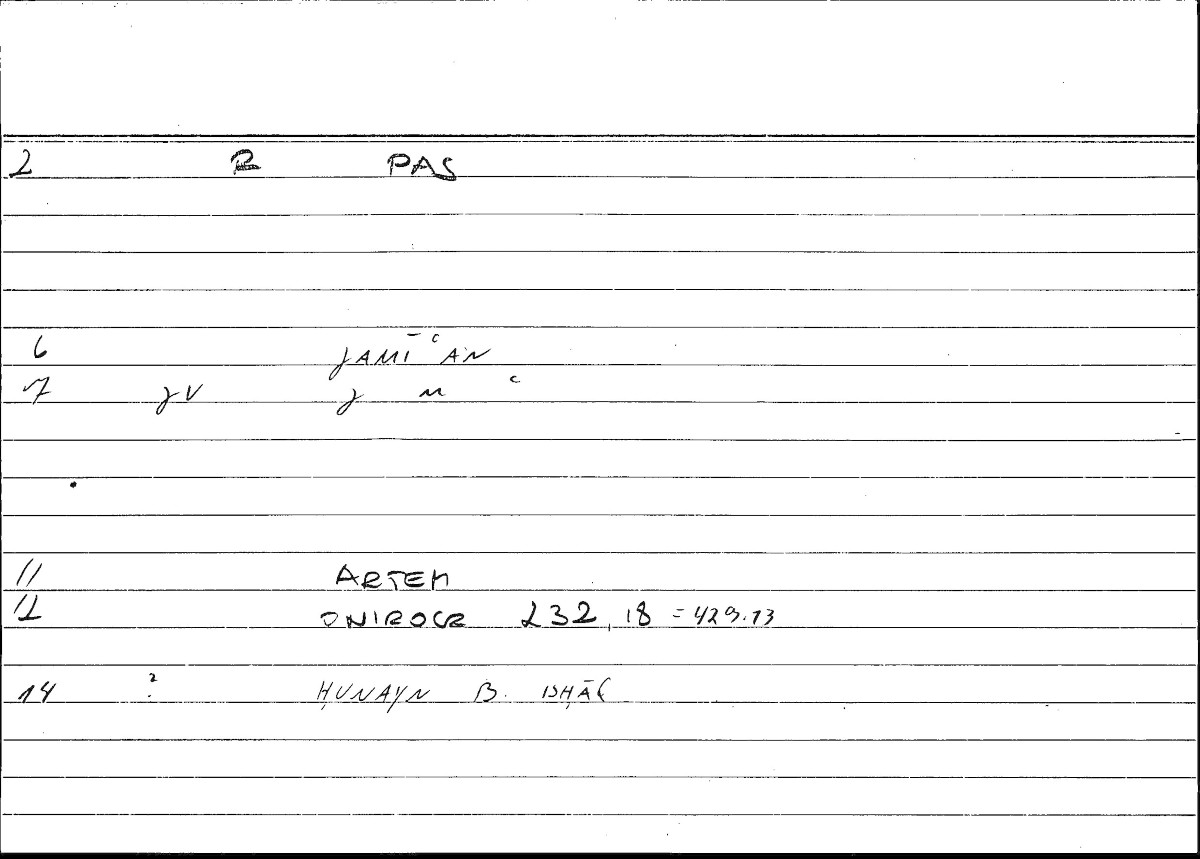 2 R PAS
6 JAMĪʿAN
7 JV J M ʿ
11 ARTEM
12 ONIROCR 232,18 = 429.13
14 ? ḤUNAYN B. ISḤĀ